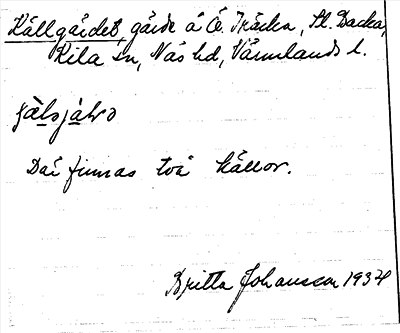 Källgärdet, gärde å Ö. Träcka, St. Backa,
Kila sn, Näs hd, Värmlands l.
Där finnas två källor.
Britta Johansson 1934